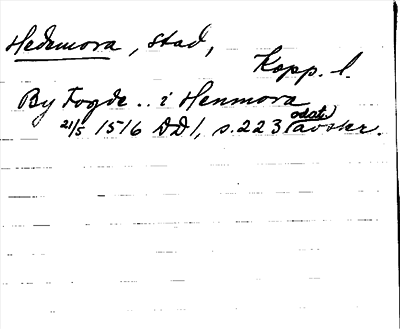 Hedemora, stad,
Kopp. l.
By Fogde .. i Henmora
21/5 1516 DD1, s. 223 odat. avskr.